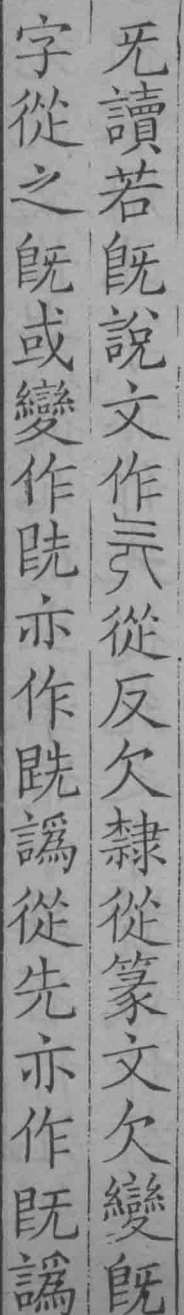 旡讀若旣說文作從反欠隸從篆文欠變旣
字從之旣或變作亦作譌從先亦作既譌